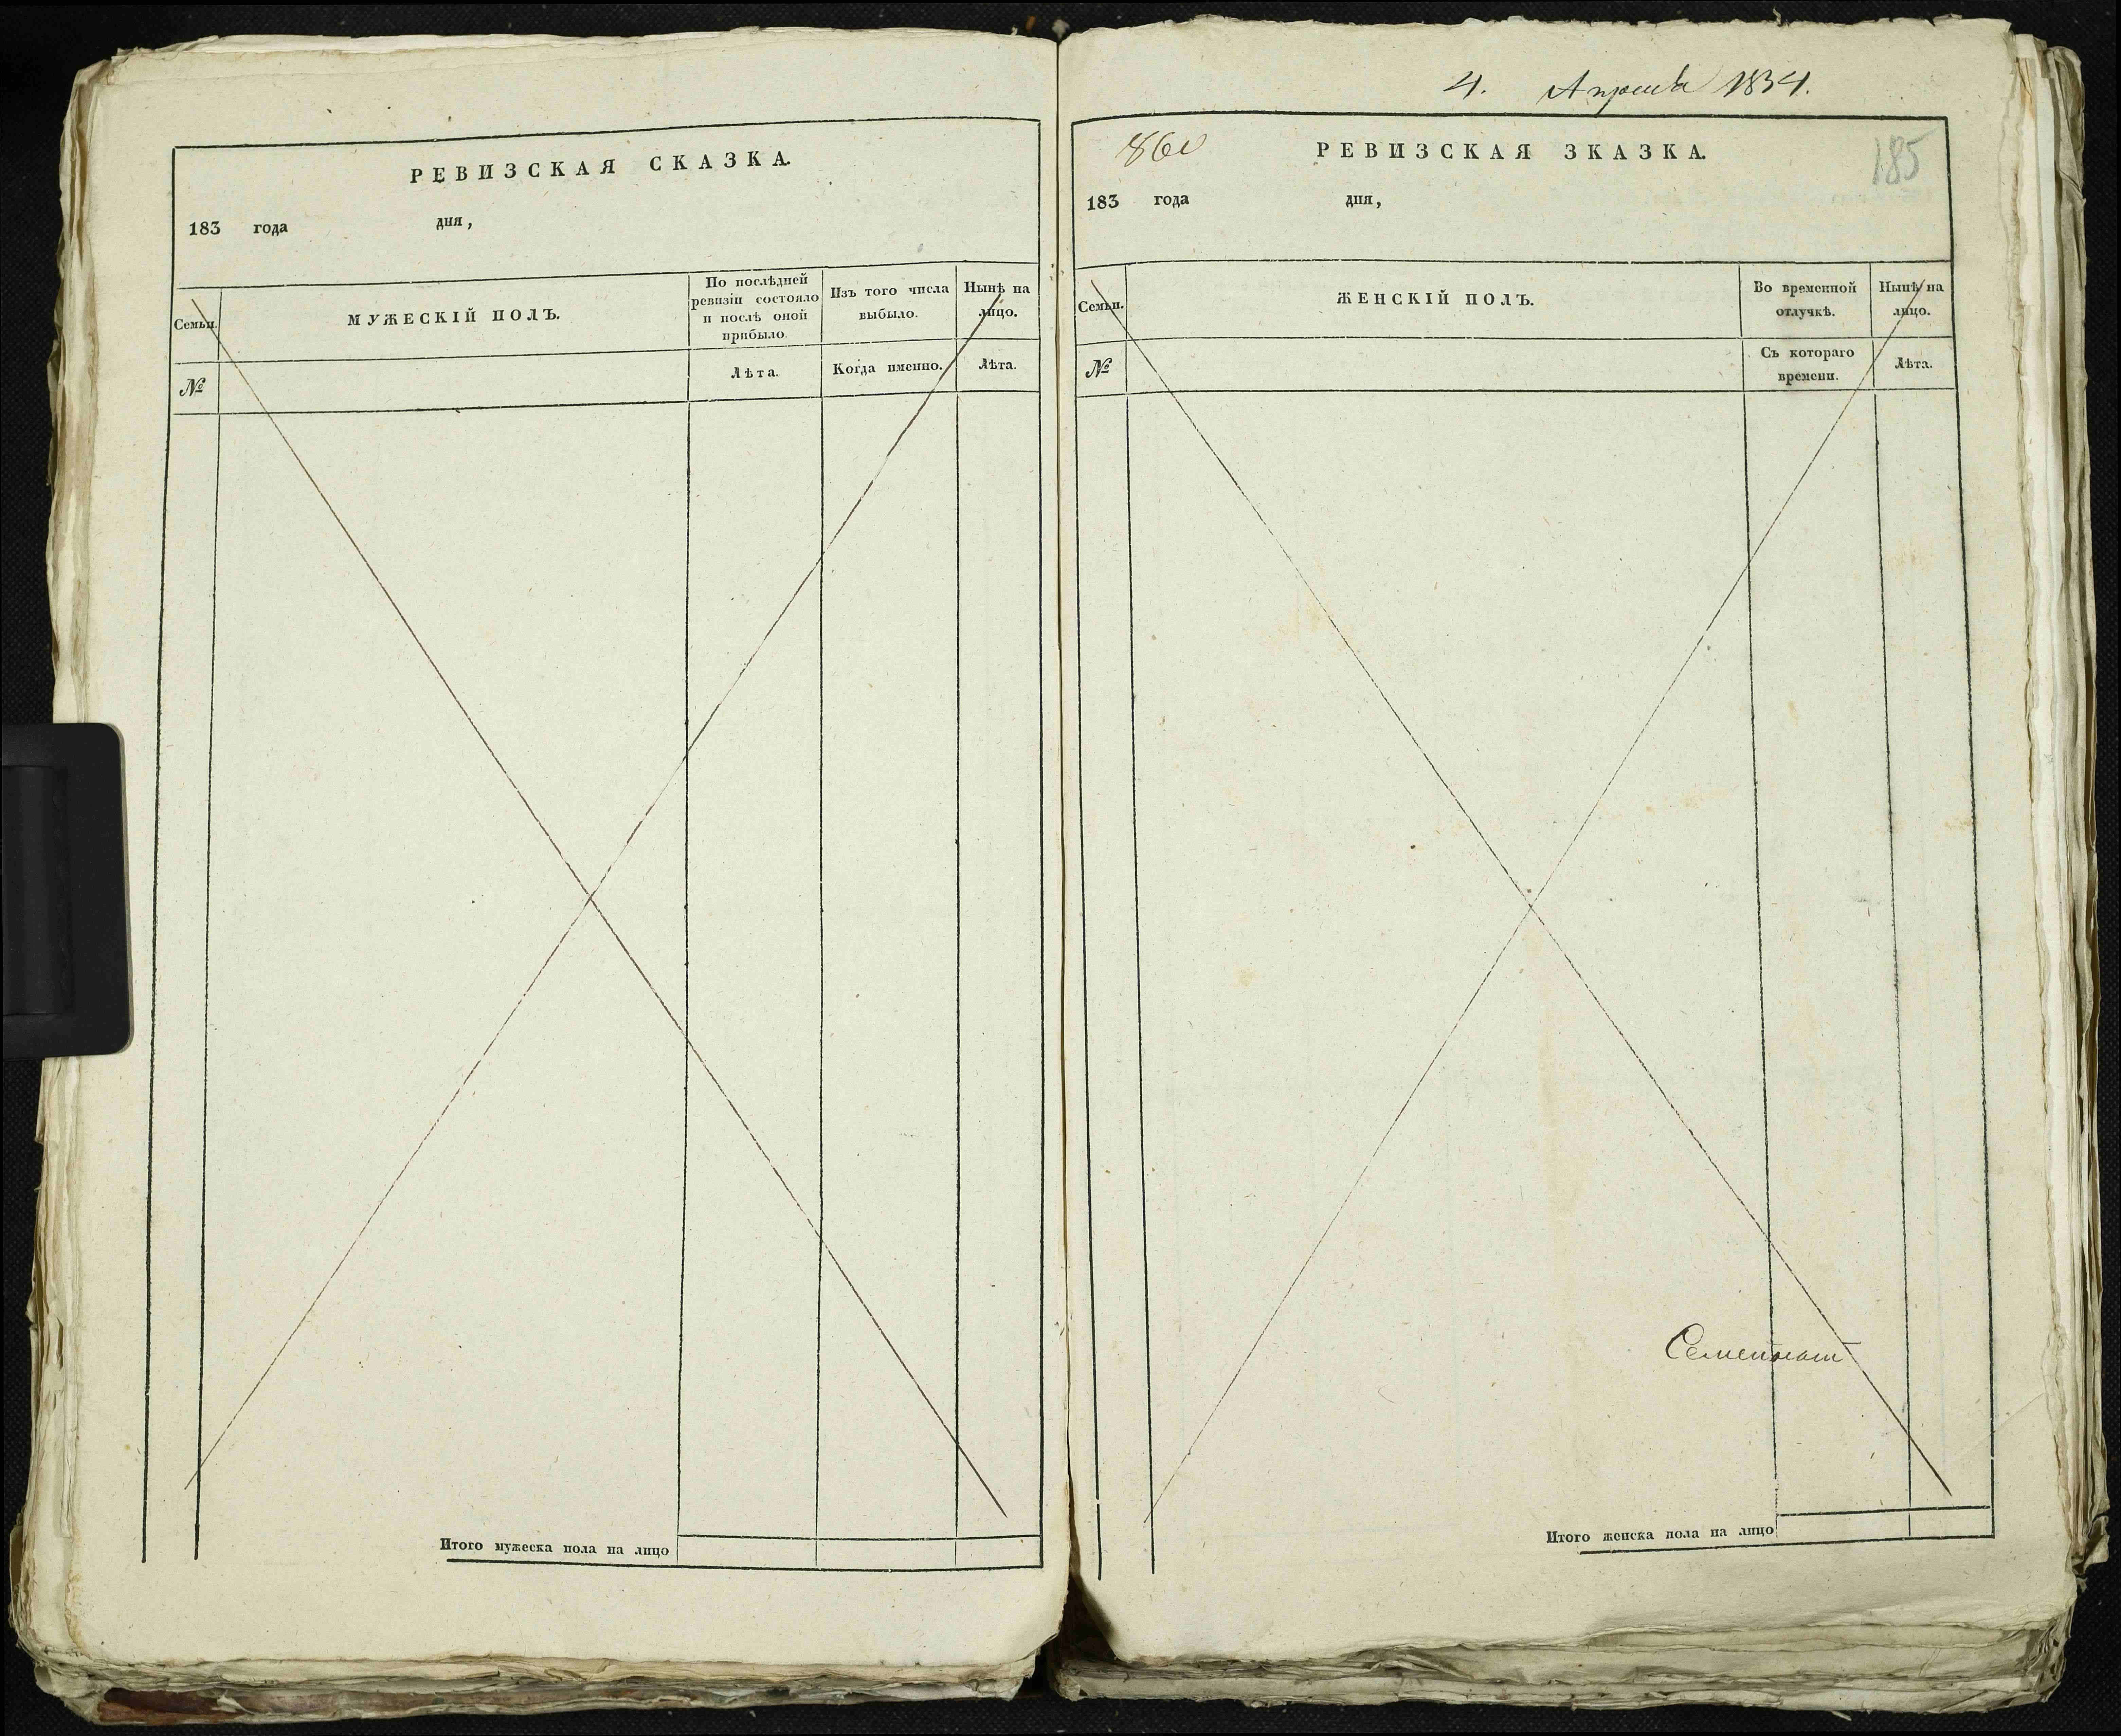 РЕВИЗСКАЯ СКАЗКА.
183 года дня,
Семьи.
МУЖЕСКІЙ ПОЛЪ.
По послѣдней
ревизіи состояло
и послѣ оной
прибыло.
Изъ того числа
выбыло.
Нынѣ на
лицо.
№
Лѣта.
Когда именно.
Лѣта.
Итого мужеска пола на лицо
4. Апреля 1834.
185
РЕВИЗСКАЯ ЗКАЗКА.
183 года дня,
Семьи.
ЖЕНСКІЙ ПОЛЪ.
Во временной
отлучкѣ.
Нынѣ на
лицо.
№
Съ котораго
времени.
Лѣта.
Итого женска пола на лицо